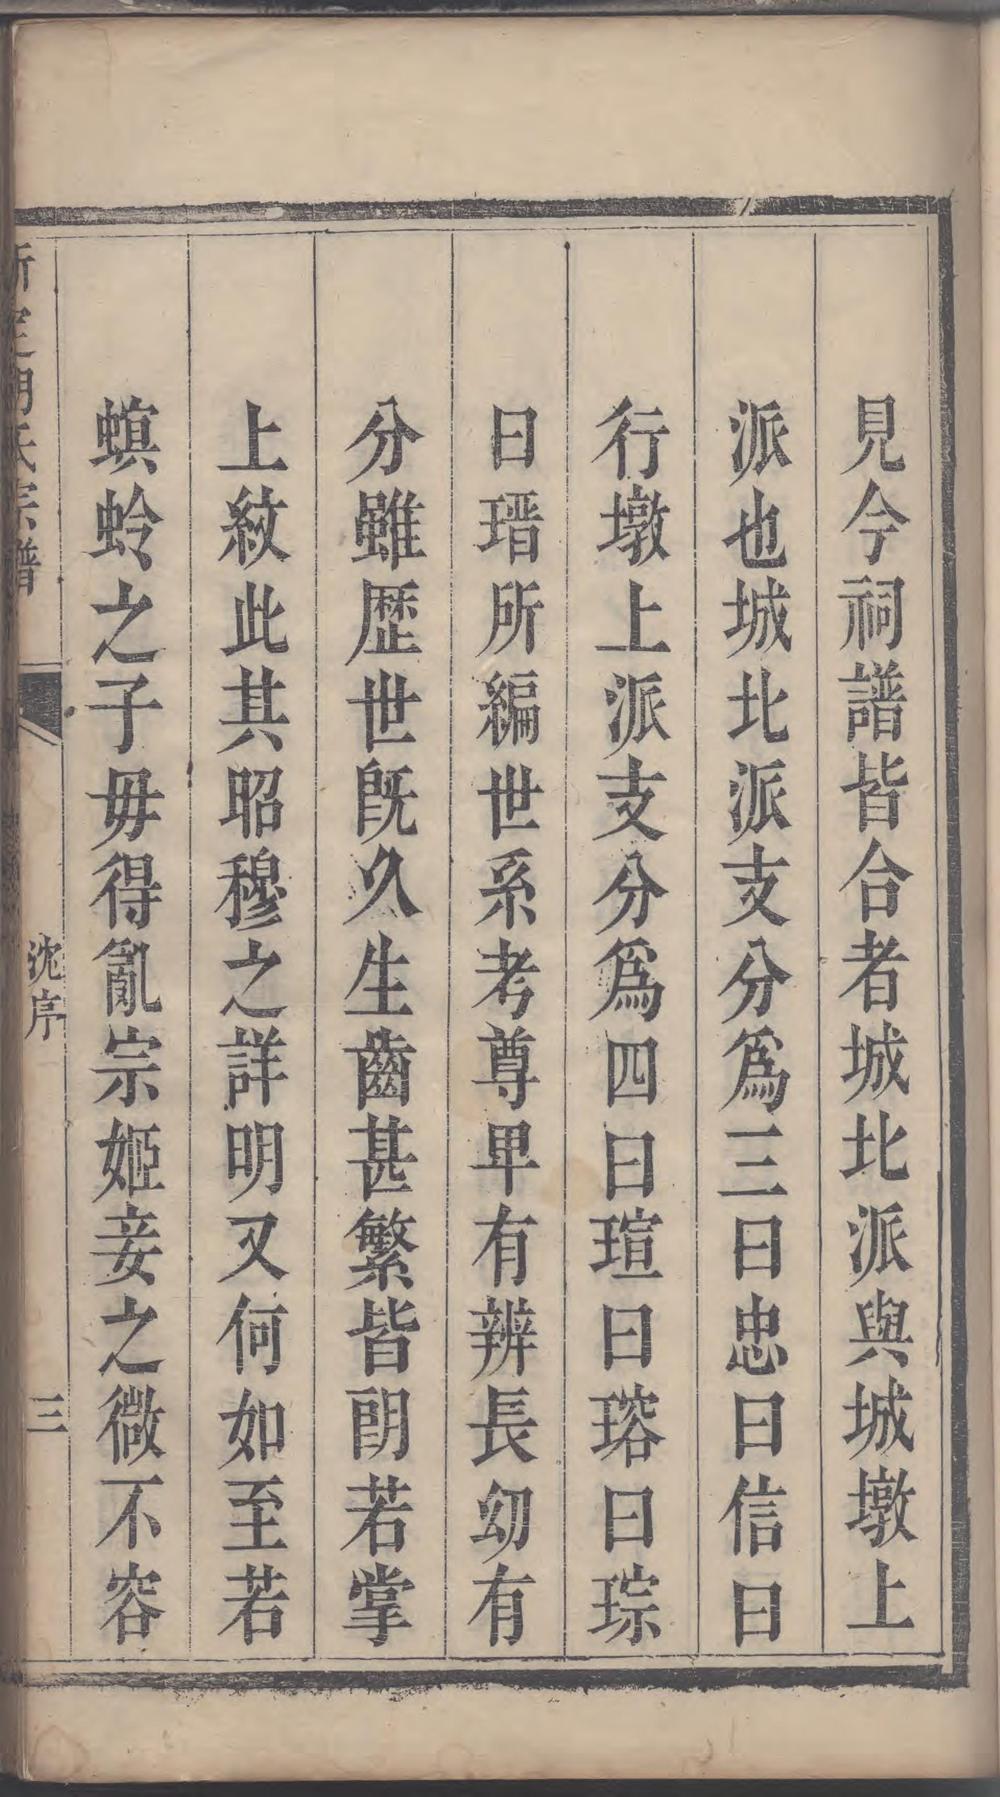 見今祠譜皆合者城北派與城墩上
派也城北派支分爲三曰忠曰信曰
行墩上派支分爲四曰瑄曰瑢曰琮
曰瑨所編世系考尊卑有辨長幼有
分雖歷世旣久生齒甚繁皆朗若掌
上紋此其昭穆之詳明又何如至若
螟蛉之子毋得亂宗姬妾之微不容
氏宗譜
沈序
三